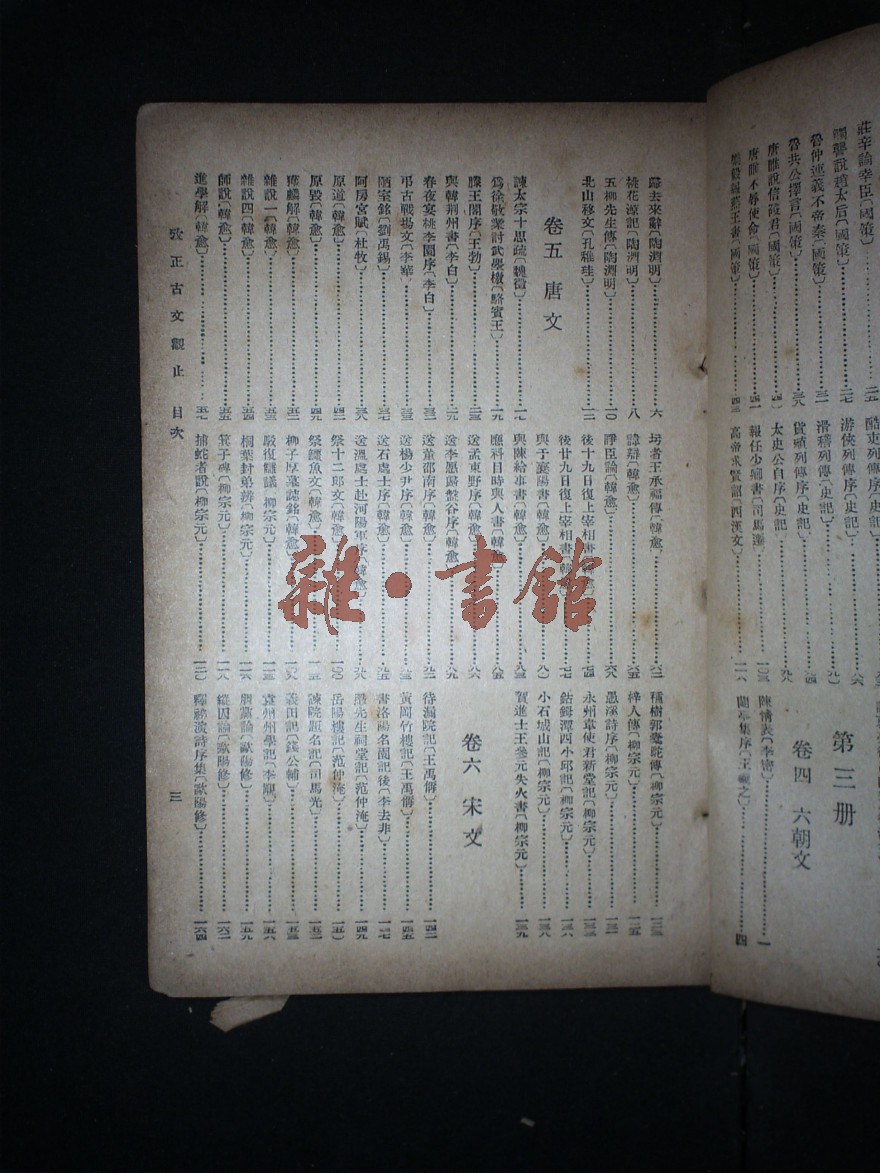 莊辛論幸臣〔國策〕
觸讋說趙太后〔國策〕……二七
魯仲連義不帝秦〔國策〕……三一
魯共公擇言〔國策〕……三八
唐雎說信陵君〔國策〕
唐雎不辱使命〔國策〕……四一
樂毅報燕王書〔國策〕……四三
酷吏列傳序〔史記〕
游俠列傳序〔史記〕
滑稽列傳〔史記〕
貨殖列傳序〔史記〕
太史公自序〔史記〕
報任少卿書〔司馬遷〕……一〇三
高帝求賢詔〔西漢文〕……一一六
第三册
卷四 六朝文
陳情表〔李密〕……一
蘭亭集序〔王羲之〕……四
歸去來辭〔陶淵明〕……六
桃花源記〔陶淵明〕……八
五柳先生傳〔陶淵明〕……一〇
北山移文〔孔稚珪〕……一二
卷五 唐文
諫太宗十思疏〔魏徵〕……一七
爲徐敬業討武曌檄〔駱賓王〕……一九
滕王閣序〔王勃〕……二三
與韓荆州書〔李白〕……二九
春夜宴桃李園序〔李白〕……三二
弔古戰場文〔李華〕……三三
陋室銘〔劉禹錫〕……三七
阿房宮賦〔杜牧〕……三八
原道〔韓愈〕……四二
原毀〔韓愈〕……四九
獲麟解〔韓愈〕……五二
雜說一〔韓愈〕……五三
雜說四〔韓愈〕……五四
師說〔韓愈〕……五五
進學解〔韓愈〕……五七
圬者王承福傳〔韓愈〕……六二
諱辯〔韓愈〕……六五
諍臣論〔韓愈〕……六八
後十九日復上宰相書〔韓愈〕……七四
後廿九日復上宰相書〔韓愈〕……七七
與于襄陽書〔韓愈〕……八〇
與陳給事書〔韓愈〕……八三
應科目時與人書〔韓愈〕……八五
送孟東野序〔韓愈〕……八六
送李愿歸盤谷序〔韓愈〕……八九
送董邵南序〔韓愈〕……九二
送楊少尹序〔韓愈〕……九三
送石處士序〔韓愈〕……九五
送溫處士赴河陽軍序〔韓愈〕……九八
祭十二郎文〔韓愈〕……一〇〇
祭鱷魚文〔韓愈〕……一〇五
柳子厚墓誌銘〔韓愈〕……一〇八
駁復讎議〔柳宗元〕……一一三
桐葉封弟辨〔柳宗元〕……一一六
箕子碑〔柳宗元〕……一一八
捕蛇者說〔柳宗元〕……一二〇
種樹郭橐駝傳〔柳宗元〕……一二三
梓人傳〔柳宗元〕……一二五
愚溪詩序〔柳宗元〕……一三一
永州韋使君新堂記〔柳宗元〕……一三三
鈷鉧潭西小邱記〔柳宗元〕……一三六
小石城山記〔柳宗元〕……一三八
賀進士王參元失火書〔柳宗元〕……一三九
卷六 宋文
待漏院記〔王禹偁〕……一四二
黄岡竹樓記〔王禹偁〕……一四五
書洛陽名園記後〔李去非〕……一四七
嚴先生祠堂記〔范仲淹〕……一四九
岳陽樓記〔范仲淹〕……一五〇
諫院題名記〔司馬光〕……一五二
義田記〔錢公輔〕……一五三
袁州州學記〔李覯〕……一五六
朋黨論〔歐陽修〕……一五九
縱囚論〔歐陽修〕……一六二
釋祕演詩序集〔歐陽修〕……一六四
攷正古文觀止 目次
三
雜·書館